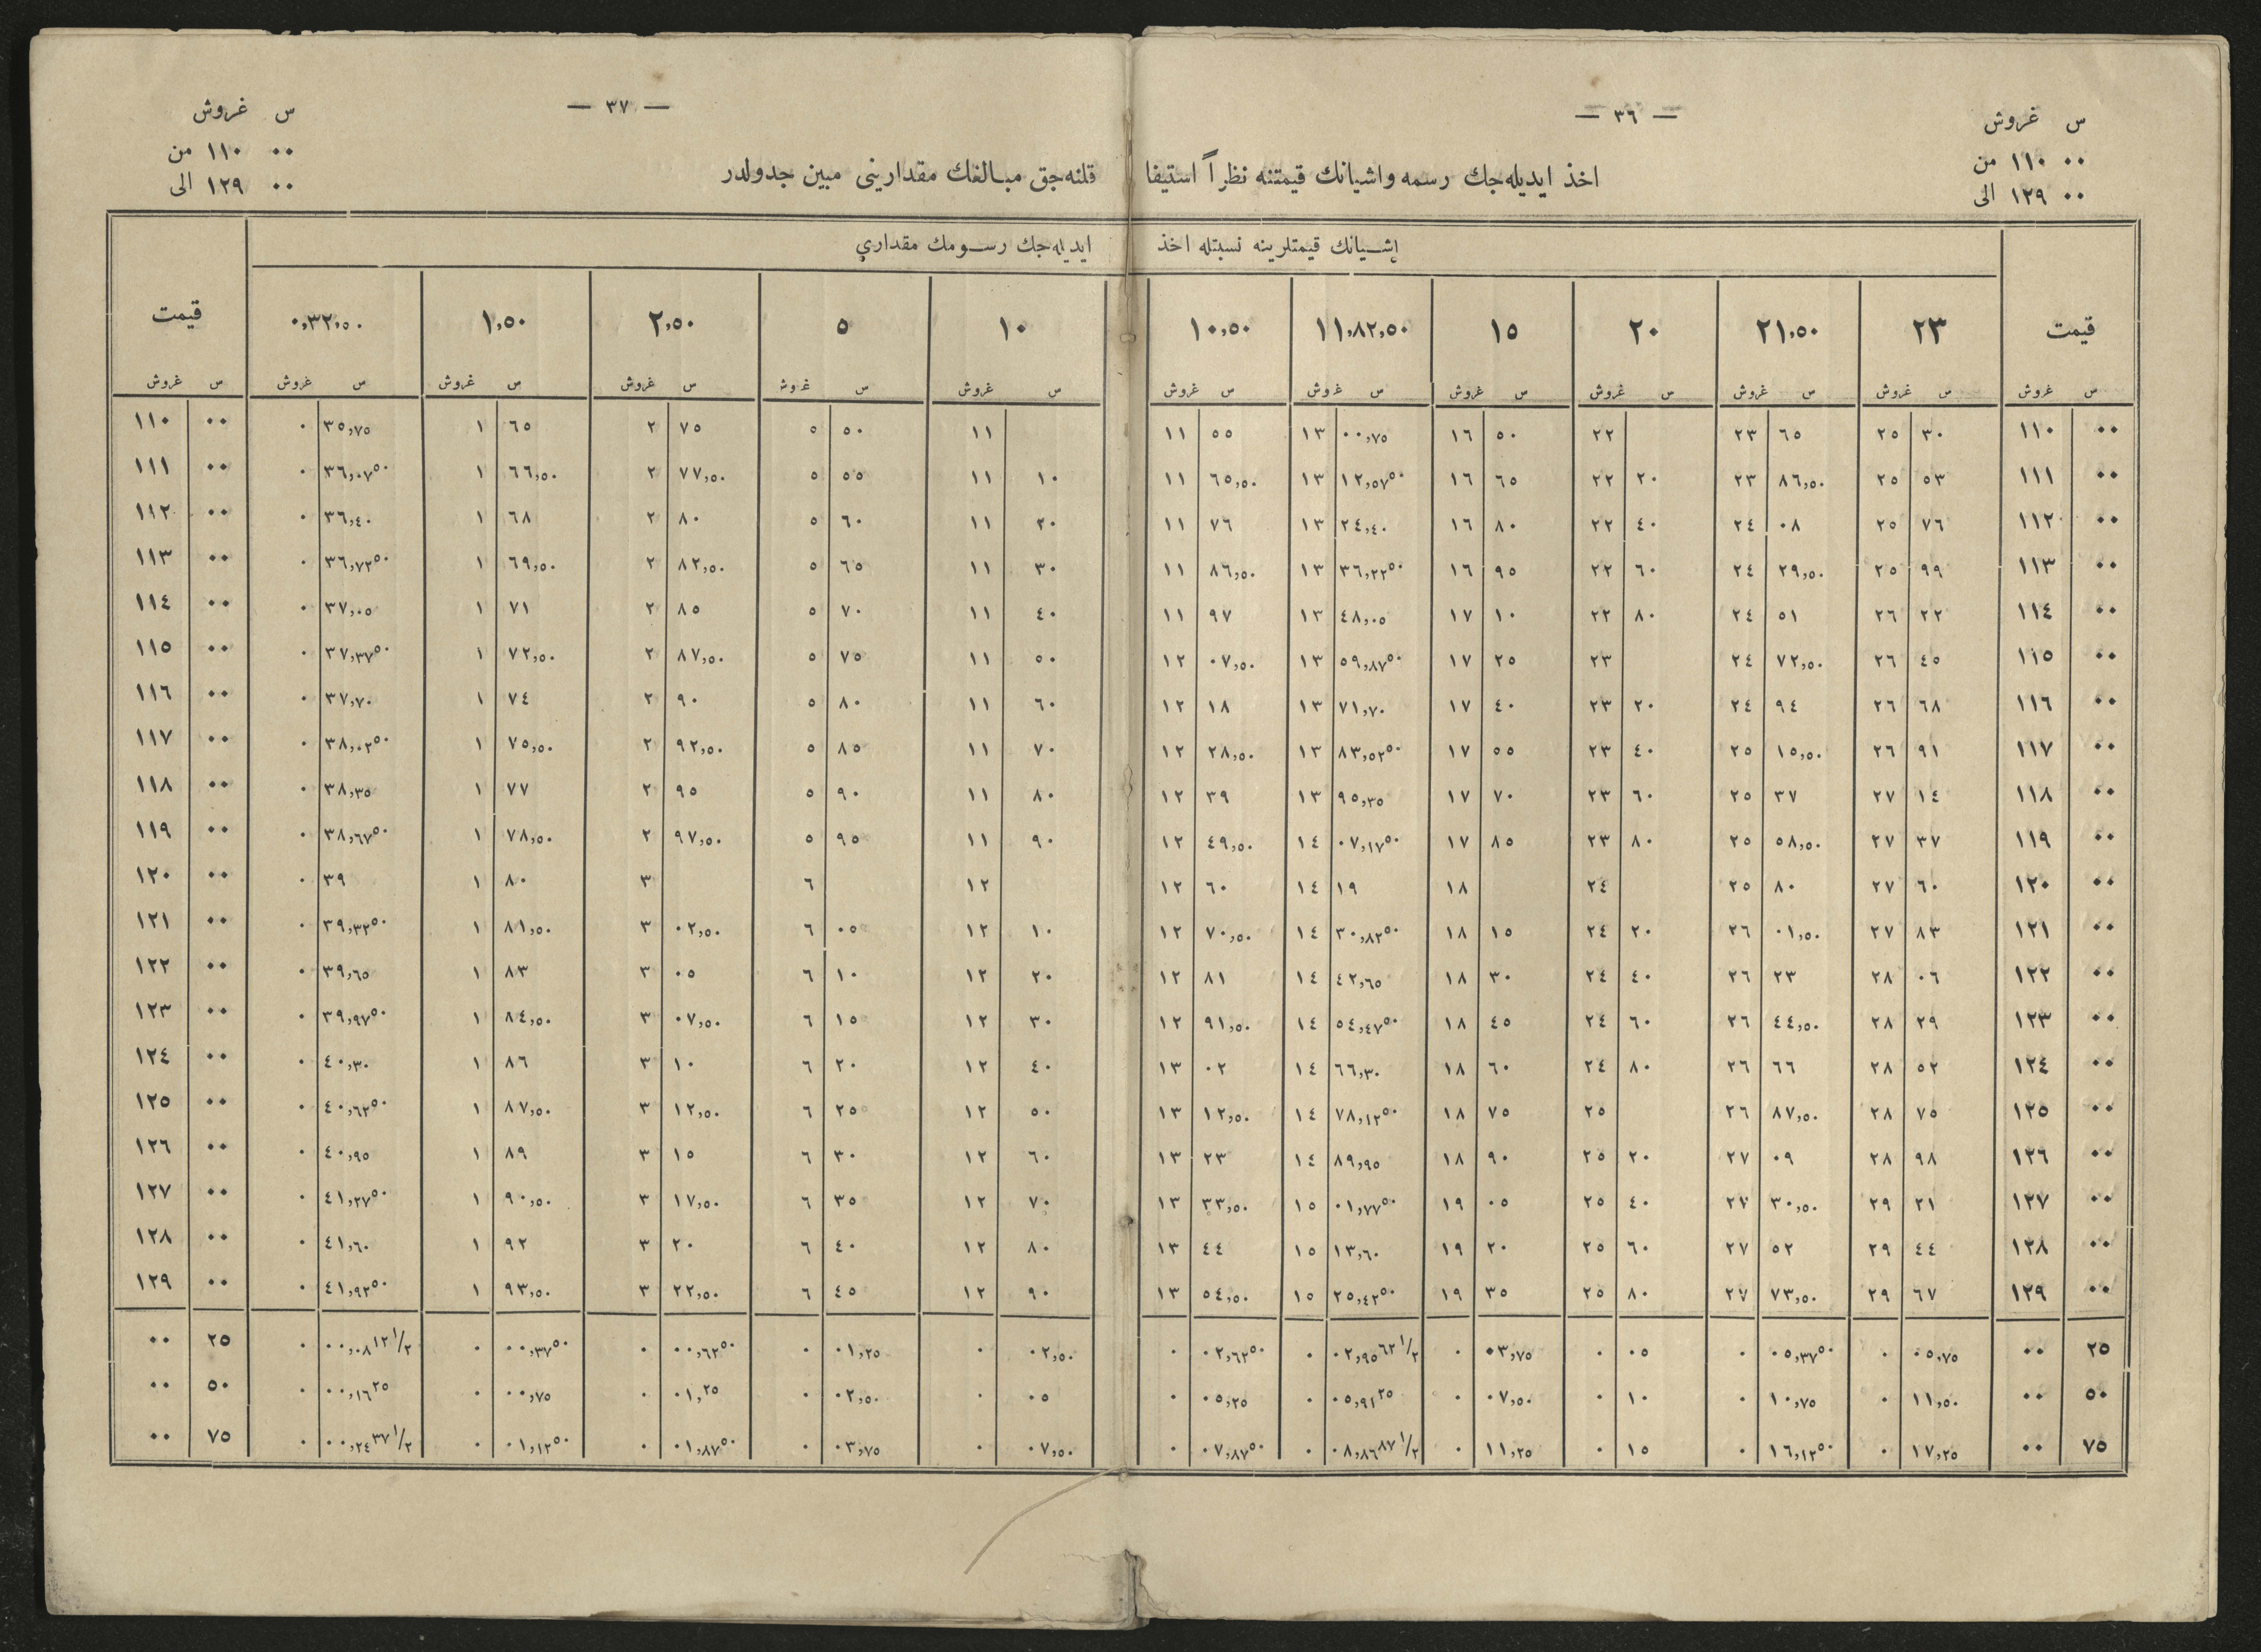 — ٣٦ —
س غروش
٠٠ ١١٠ من
٠٠ ١٢٩ الى
— ٣٧ —
س غروش
٠٠ ١١٠ من
٠٠ ١٢٩ الى
اخذ ايديله‌جك رسمه واشيانك قيمتنه نظراً استيفا قلنه‌جق مبالغك مقدارينى مبين جدولدر
اشيانك قيمتلرينه نسبتله اخذ ايديله‌جك رسومك مقدارى
قيمت ٢٣ ٢١,٥٠ ٢٠ ١٥ ١١,٨٢,٥٠ ١٠,٥٠ ١٠ ٥ ٢,٥٠ ١,٥٠ ٠,٣٢,٥٠ قيمت
س غروش س غروش س غروش س غروش س غروش س غروش س غروش س غروش س غروش س غروش س غروش س غروش س غروش
٠٠ ١١٠ ٣٠ ٢٥ ٦٥ ٢٣ ٢٢ ٥٠ ١٦ ٠٠,٧٥ ١٣ ٥٥ ١١ ١١ ٥٠ ٥ ٧٥ ٢ ٦٥ ١ ٣٥,٧٥ ٠ ٠٠ ١١٠
٠٠ ١١١ ٥٣ ٢٥ ٨٦,٥٠ ٢٣ ٢٠ ٢٢ ٦٥ ١٦ ١٢,٥٧٥٠ ١٣ ٦٥,٥٠ ١١ ١٠ ١١ ٥٥ ٥ ٧٧,٥٠ ٢ ٦٦,٥٠ ١ ٣٦,٠٧٥٠ ٠ ٠٠ ١١١
٠٠ ١١٢ ٧٦ ٢٥ ٠٨ ٢٤ ٤٠ ٢٢ ٨٠ ١٦ ٢٤,٤٠ ١٣ ٧٦ ١١ ٢٠ ١١ ٦٠ ٥ ٨٠ ٢ ٦٨ ١ ٣٦,٤٠ ٠ ٠٠ ١١٢
٠٠ ١١٣ ٩٩ ٢٥ ٢٩,٥٠ ٢٤ ٦٠ ٢٢ ٩٥ ١٦ ٣٦,٢٢٥٠ ١٣ ٨٦,٥٠ ١١ ٣٠ ١١ ٦٥ ٥ ٨٢,٥٠ ٢ ٦٩,٥٠ ١ ٣٦,٧٢٥٠ ٠ ٠٠ ١١٣
٠٠ ١١٤ ٢٢ ٢٦ ٥١ ٢٤ ٨٠ ٢٢ ١٠ ١٧ ٤٨,٠٥ ١٣ ٩٧ ١١ ٤٠ ١١ ٧٠ ٥ ٨٥ ٢ ٧١ ١ ٣٧,٠٥ ٠ ٠٠ ١١٤
٠٠ ١١٥ ٤٥ ٢٦ ٧٢,٥٠ ٢٤ ٢٣ ٢٥ ١٧ ٥٩,٨٧٥٠ ١٣ ٠٧,٥٠ ١٢ ٥٠ ١١ ٧٥ ٥ ٨٧,٥٠ ٢ ٧٢,٥٠ ١ ٣٧,٣٧٥٠ ٠ ٠٠ ١١٥
٠٠ ١١٦ ٦٨ ٢٦ ٩٤ ٢٤ ٢٠ ٢٣ ٤٠ ١٧ ٧١,٧٠ ١٣ ١٨ ١٢ ٦٠ ١١ ٨٠ ٥ ٩٠ ٢ ٧٤ ١ ٣٧,٧٠ ٠ ٠٠ ١١٦
٠٠ ١١٧ ٩١ ٢٦ ١٥,٥٠ ٢٥ ٤٠ ٢٣ ٥٥ ١٧ ٨٣,٥٢٥٠ ١٣ ٢٨,٥٠ ١٢ ٧٠ ١١ ٨٥ ٥ ٩٢,٥٠ ٢ ٧٥,٥٠ ١ ٣٨,٠٢٥٠ ٠ ٠٠ ١١٧
٠٠ ١١٨ ١٤ ٢٧ ٣٧ ٢٥ ٦٠ ٢٣ ٧٠ ١٧ ٩٥,٣٥ ١٣ ٣٩ ١٢ ٨٠ ١١ ٩٠ ٥ ٩٥ ٢ ٧٧ ١ ٣٨,٣٥ ٠ ٠٠ ١١٨
٠٠ ١١٩ ٣٧ ٢٧ ٥٨,٥٠ ٢٥ ٨٠ ٢٣ ٨٥ ١٧ ٠٧,١٧٥٠ ١٤ ٤٩,٥٠ ١٢ ٩٠ ١١ ٩٥ ٥ ٩٧,٥٠ ٢ ٧٨,٥٠ ١ ٣٨,٦٧٥٠ ٠ ٠٠ ١١٩
٠٠ ١٢٠ ٦٠ ٢٧ ٨٠ ٢٥ ٢٤ ١٨ ١٩ ١٤ ٦٠ ١٢ ١٢ ٦ ٣ ٨٠ ١ ٣٩ ٠ ٠٠ ١٢٠
٠٠ ١٢١ ٨٣ ٢٧ ٠١,٥٠ ٢٦ ٢٠ ٢٤ ١٥ ١٨ ٣٠,٨٢٥٠ ١٤ ٧٠,٥٠ ١٢ ١٠ ١٢ ٠٥ ٦ ٠٢,٥٠ ٣ ٨١,٥٠ ١ ٣٩,٣٢٥٠ ٠ ٠٠ ١٢١
٠٠ ١٢٢ ٠٦ ٢٨ ٢٣ ٢٦ ٤٠ ٢٤ ٣٠ ١٨ ٤٢,٦٥ ١٤ ٨١ ١٢ ٢٠ ١٢ ١٠ ٦ ٠٥ ٣ ٨٣ ١ ٣٩,٦٥ ٠ ٠٠ ١٢٢
٠٠ ١٢٣ ٢٩ ٢٨ ٤٤,٥٠ ٢٦ ٦٠ ٢٤ ٤٥ ١٨ ٥٤,٤٧٥٠ ١٤ ٩١,٥٠ ١٢ ٣٠ ١٢ ١٥ ٦ ٠٧,٥٠ ٣ ٨٤,٥٠ ١ ٣٩,٩٧٥٠ ٠ ٠٠ ١٢٣
٠٠ ١٢٤ ٥٢ ٢٨ ٦٦ ٢٦ ٨٠ ٢٤ ٦٠ ١٨ ٦٦,٣٠ ١٤ ٠٢ ١٣ ٤٠ ١٢ ٢٠ ٦ ١٠ ٣ ٨٦ ١ ٤٠,٣٠ ٠ ٠٠ ١٢٤
٠٠ ١٢٥ ٧٥ ٢٨ ٨٧,٥٠ ٢٦ ٢٥ ٧٥ ١٨ ٧٨,١٢٥٠ ١٤ ١٢,٥٠ ١٣ ٥٠ ١٢ ٢٥ ٦ ١٢,٥٠ ٣ ٨٧,٥٠ ١ ٤٠,٦٢٥٠ ٠ ٠٠ ١٢٥
٠٠ ١٢٦ ٩٨ ٢٨ ٠٩ ٢٧ ٢٠ ٢٥ ٩٠ ١٨ ٨٩,٩٥ ١٤ ٢٣ ١٣ ٦٠ ١٢ ٣٠ ٦ ١٥ ٣ ٨٩ ١ ٤٠,٩٥ ٠ ٠٠ ١٢٦
٠٠ ١٢٧ ٢١ ٢٩ ٣٠,٥٠ ٢٧ ٤٠ ٢٥ ٠٥ ١٩ ٠١,٧٧٥٠ ١٥ ٣٣,٥٠ ١٣ ٧٠ ١٢ ٣٥ ٦ ١٧,٥٠ ٣ ٩٠,٥٠ ١ ٤١,٢٧٥٠ ٠ ٠٠ ١٢٧
٠٠ ١٢٨ ٤٤ ٢٩ ٥٢ ٢٧ ٦٠ ٢٥ ٢٠ ١٩ ١٣,٦٠ ١٥ ٤٤ ١٣ ٨٠ ١٢ ٤٠ ٦ ٢٠ ٣ ٩٢ ١ ٤١,٦٠ ٠ ٠٠ ١٢٨
٠٠ ١٢٩ ٦٧ ٢٩ ٧٣,٥٠ ٢٧ ٨٠ ٢٥ ٣٥ ١٩ ٢٥,٤٢٥٠ ١٥ ٥٤,٥٠ ١٣ ٩٠ ١٢ ٤٥ ٦ ٢٢,٥٠ ٣ ٩٣,٥٠ ١ ٤١,٩٢٥٠ ٠ ٠٠ ١٢٩
٢٥ ٠٠ ٠٥,٧٥ ٠ ٠٥,٣٧٥٠ ٠ ٠٥ ٠ ٠٣,٧٥ ٠ ٠٢,٩٥٦٢١/٢ ٠ ٠٢,٦٢٥٠ ٠ ٠٢,٥٠ ٠ ٠١,٢٥ ٠ ٠٠,٦٢٥٠ ٠ ٠٠,٣٧٥٠ ٠ ٠٠,٠٨١٢١/٢ ٠ ٢٥ ٠٠
٥٠ ٠٠ ١١,٥٠ ٠ ١٠,٧٥ ٠ ١٠ ٠ ٠٧,٥٠ ٠ ٠٥,٩١٢٥ ٠ ٠٥,٢٥ ٠ ٠٥ ٠ ٠٢,٥٠ ٠ ٠١,٢٥ ٠ ٠٠,٧٥ ٠ ٠٠,١٦٢٥ ٠ ٥٠ ٠٠
٧٥ ٠٠ ١٧,٢٥ ٠ ١٦,١٢٥٠ ٠ ١٥ ٠ ١١,٢٥ ٠ ٠٨,٨٦٨٧١/٢ ٠ ٠٧,٨٧٥٠ ٠ ٠٧,٥٠ ٠ ٠٣,٧٥ ٠ ٠١,٨٧٥٠ ٠ ٠١,١٢٥٠ ٠ ٠٠,٢٤٣٧١/٢ ٠ ٧٥ ٠٠